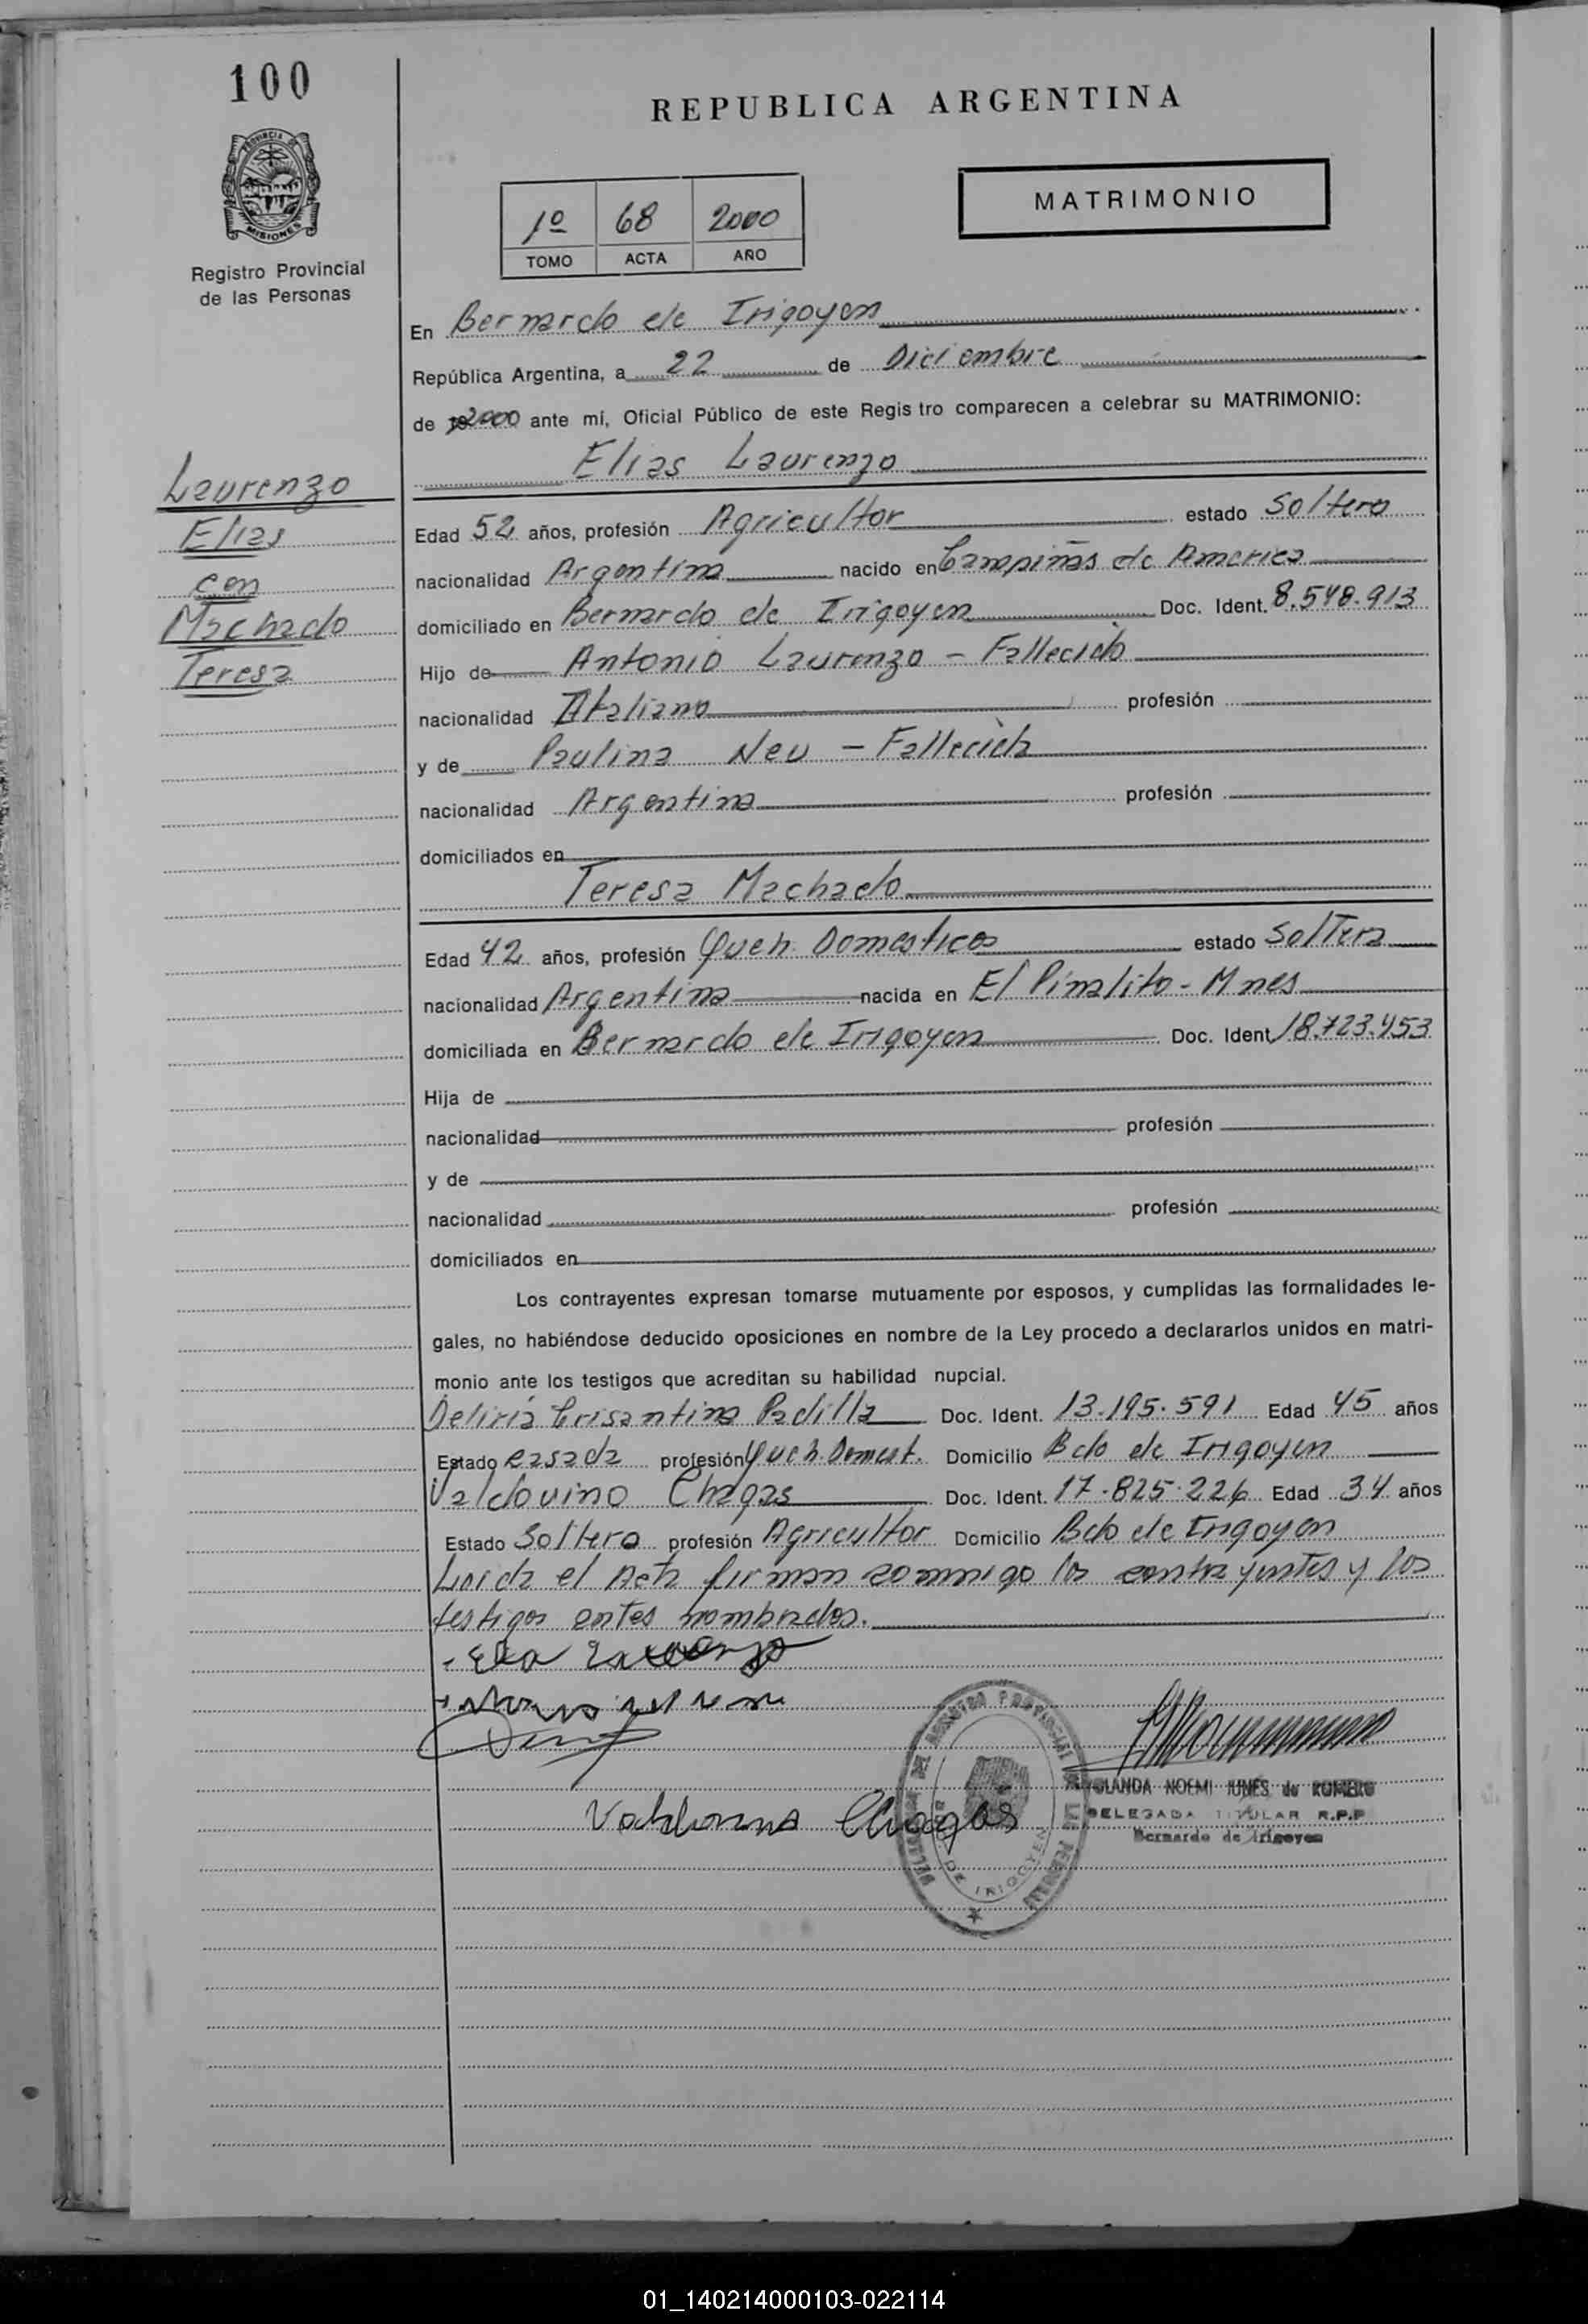 100
REPUBLICA ARGENTINA
PROVINCIA DE
MISIONES
MATRIMONIO
1º 68 2000
TOMO ACTA AÑO
Registro Provincial
de las Personas
En Bernardo de Irigoyen
República Argentina, a 22 de Diciembre
de 2000 ante mí, Oficial Público de este Regis tro comparecen a celebrar su MATRIMONIO:
Elias Laurenzo
Laurenzo
Elias
con
Machado
Teresa
Edad 52 años, profesión Agricultor estado Soltero
nacionalidad Argentina nacido en Campiñas de America
domiciliado en Bernardo de Irigoyen Doc. Ident. 8.548.913
Hijo de Antonio Laurenzo - Fallecido
nacionalidad Italiano profesión
y de Paulina Neu - Fallecida
nacionalidad Argentina profesión
domiciliados en
Teresa Machado
Edad 42 años, profesión Queh. Domesticos estado Soltera
nacionalidad Argentina nacida en El Pinalito - Mnes
domiciliada en Bernardo de Irigoyen Doc. Ident 18.723.453
Hija de
nacionalidad profesión
y de
nacionalidad profesión
domiciliados en
Los contrayentes expresan tomarse mutuamente por esposos, y cumplidas las formalidades le-
gales, no habiéndose deducido oposiciones en nombre de la Ley procedo a declararlos unidos en matri-
monio ante los testigos que acreditan su habilidad nupcial.
Deliria Crisantina Padilla Doc. Ident. 13.195.591 Edad 45 años
Estado casada profesión Queh. Domest. Domicilio Bdo de Irigoyen
Valdovino Chagas Doc. Ident. 17.825.226 Edad 34 años
Estado Soltero profesión Agricultor Domicilio Bdo de Irigoyen
Leida el Acta firman conmigo los contrayentes y los
testigos antes nombrados.
Chagas
YOLANDA NOEMI JUNES de ROMERO
DELEGADA TITULAR R.P.P
Bernardo de Irigoyen
01_140214000103-022114